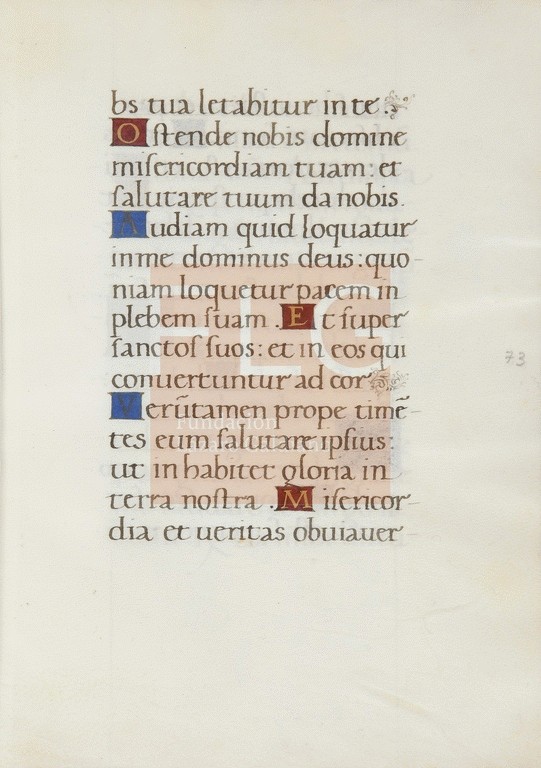 bs tua letabitur in te.
Oſtende nobis domine
miſericordiam tuam: et
ſalutare tuum da nobis.
Audiam quid loquatur
in me dominus deus: quo-
niam loquetur pacem in
plebem ſuam. Et ſuper
ſanctoſ ſuos: et in eos qui
conuertuntur ad cor
Verūtamen prope timē-
tes eum ſalutare ipſius:
ut inhabitet gloria in
terra noſtra. Miſericor-
dia et ueritas obuiauer-
73
FLG
Fundación